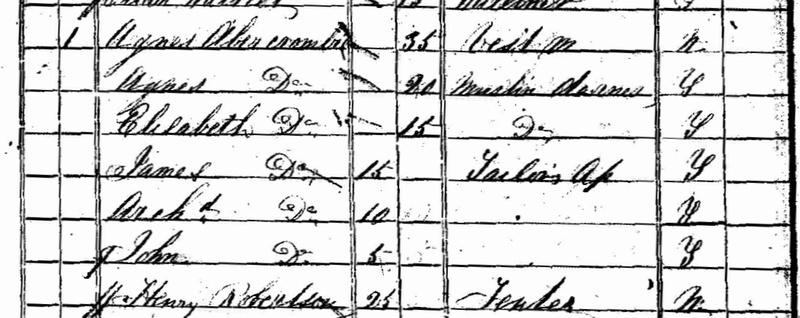 1 Agnes Abercrombie 35 Vest M N
Agnes Do 20 Muslin darner Y
Elizabeth Do 15 Do Y
James Do 15 Tailors Ap Y
Archd Do 10 Y
John Do 5 Y
Henry Robertson 25 N